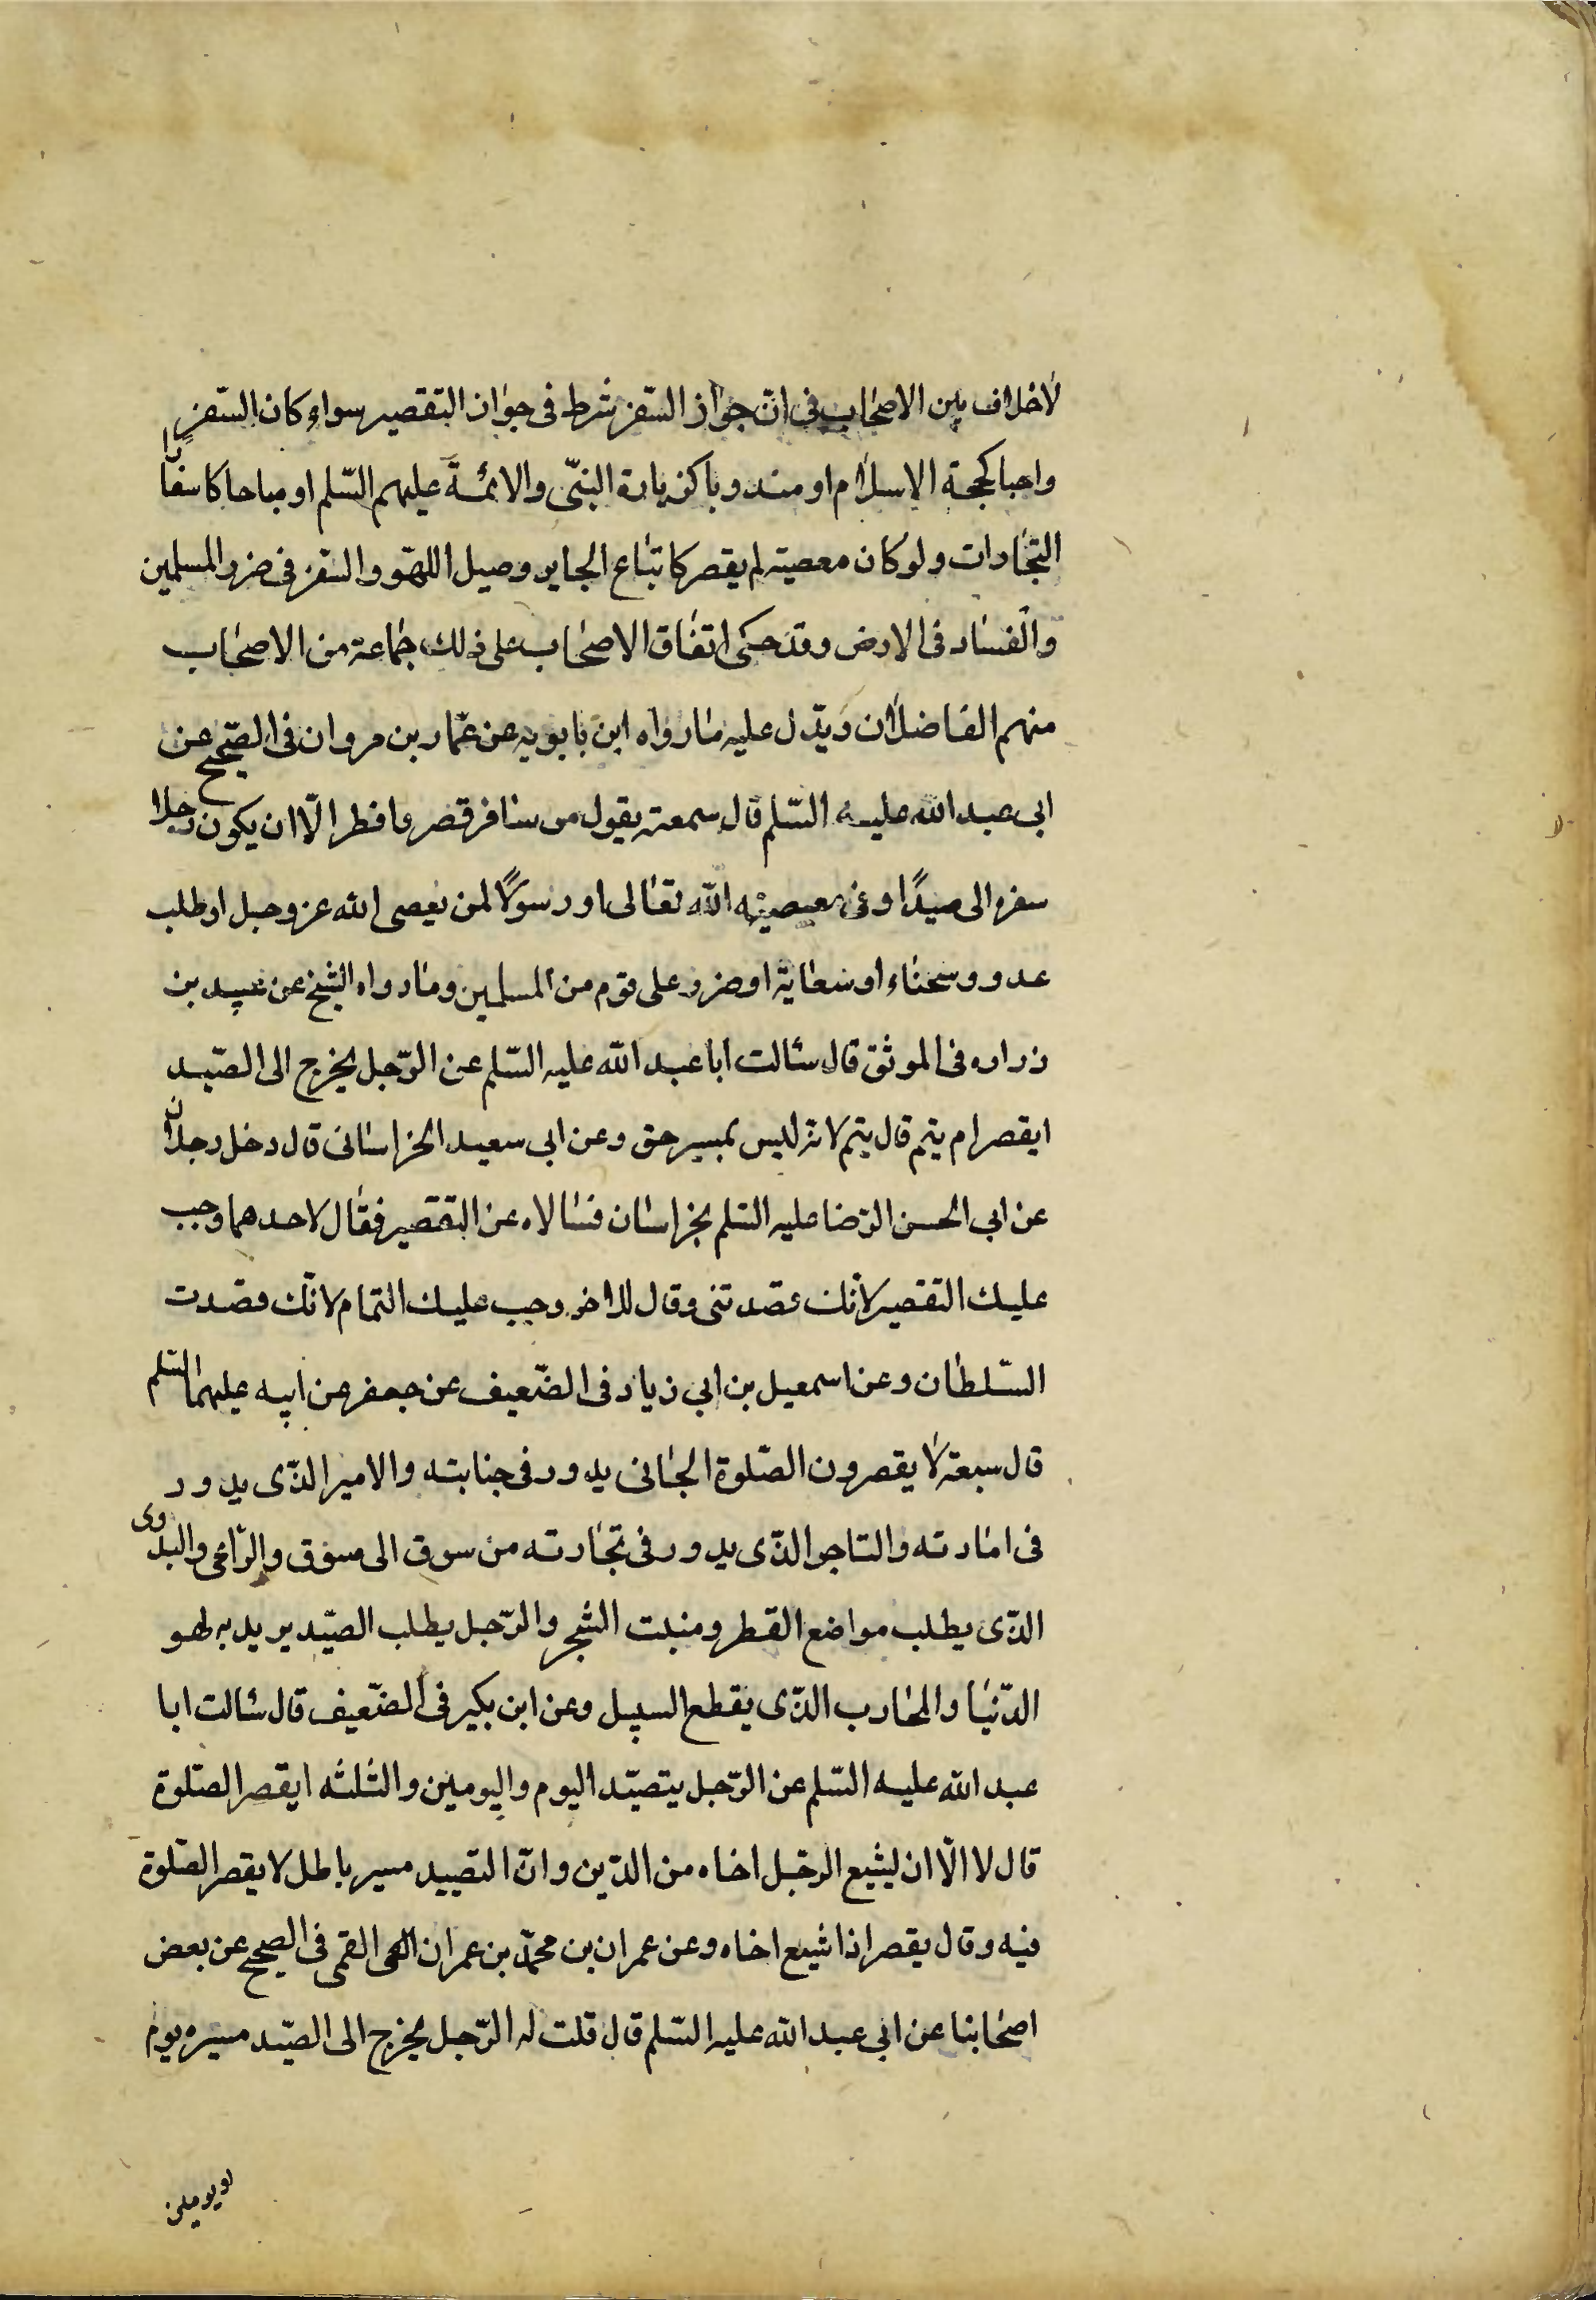 لاخلاف بين الاصحاب فى انّ جواز السّفر شرط فى جواز التقصير سواء كان السّفر
واجبا كحجة الاسلام او مندوبا كزيارة النبّى والائمة عليهم السّلم او مباحا كاسفار
التجارات ولو كان معصية لم يقصر كاتباع الجاير وصيل اللهّو والسّفر فى ضرر المسلمين
والفساد فى الارض وقد حكى اتفاق الاصحاب على ذلك جماعة من الاصحاب
منهم الفاضلان ويدّل عليه ما رواه ابن بابويه عن عمّار بن مروان فى الصّحيح عن
ابى عبد الله عليه السّلم قال سمعته يقول من سافر قصر وافطر الّا ان يكون رجلا
سفره الى صيدًا وفى معصية الله تعالى او رسولًا لمن يعصى الله عز وجل او طلب
عدو وسحناء او سعاية او ضرر على قوم من المسلمين وما رواه الشيخ عن عبيد بن
زراره فى الموثق قال سئالت ابا عبد الله عليه السّلم عن الرّجل يخرج الى الصّيد
ايقصر ام يتم قال يتم لانه ليس بمسير حق وعن ابى سعيد الخراسانى قال دخل رجلان
عن ابى الحسن الرّضا عليه السّلم بخراسان فسالاه عن التقصير فقال لاحدهما وجب
عليك التقصير لانّك قصدتنى وقال للاخر وجب عليك التمام لانّك قصدت
السّلطان وعن اسمعيل بن ابى زياد فى الضّعيف عن جعفر عن ابيه عليهما السّلم
قال سبعة لا يقصرون الصّلوة الجانى يدور فى جنابته والامير الذّى يدور
فى امارته والتاجر الذّى يدور فى تجارته من سوق الى سوق والرّاعى والبدوى
الذّى يطلب مواضع القطر ومنبت الشجر والرّجل يطلب الصيّد يريد به لهو
الدّنيا والمحارب الذّى يقطع السبيل وعن ابن بكير فى الضّعيف قال سئالت ابا
عبد الله عليه السّلم عن الرّجل يتصيّد اليوم واليومين والثلثه ايقصر الصّلوة
قال لا الّا ان ليشيع الرجّل اخاه من الدّين وانّ التصييد مسير باطل لا يقصر الصّلوة
فيه وقال يقصر اذا شيع اخاه وعن عمران بن محمّد بن عمران القمى فى الصحيح عن بعض
اصحابنا عن ابى عبد الله عليه السّلم قال قلت له الرّجل يخرج الى الصيّد مسيره يوم
او يومين